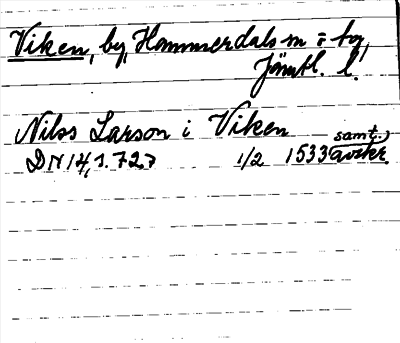 Viken, by, Hammerdals sn o tg,
Jämtl. l.
Nilss Larson i Viken
DN 14, s. 727 1/2 1533 samt.) avskr.